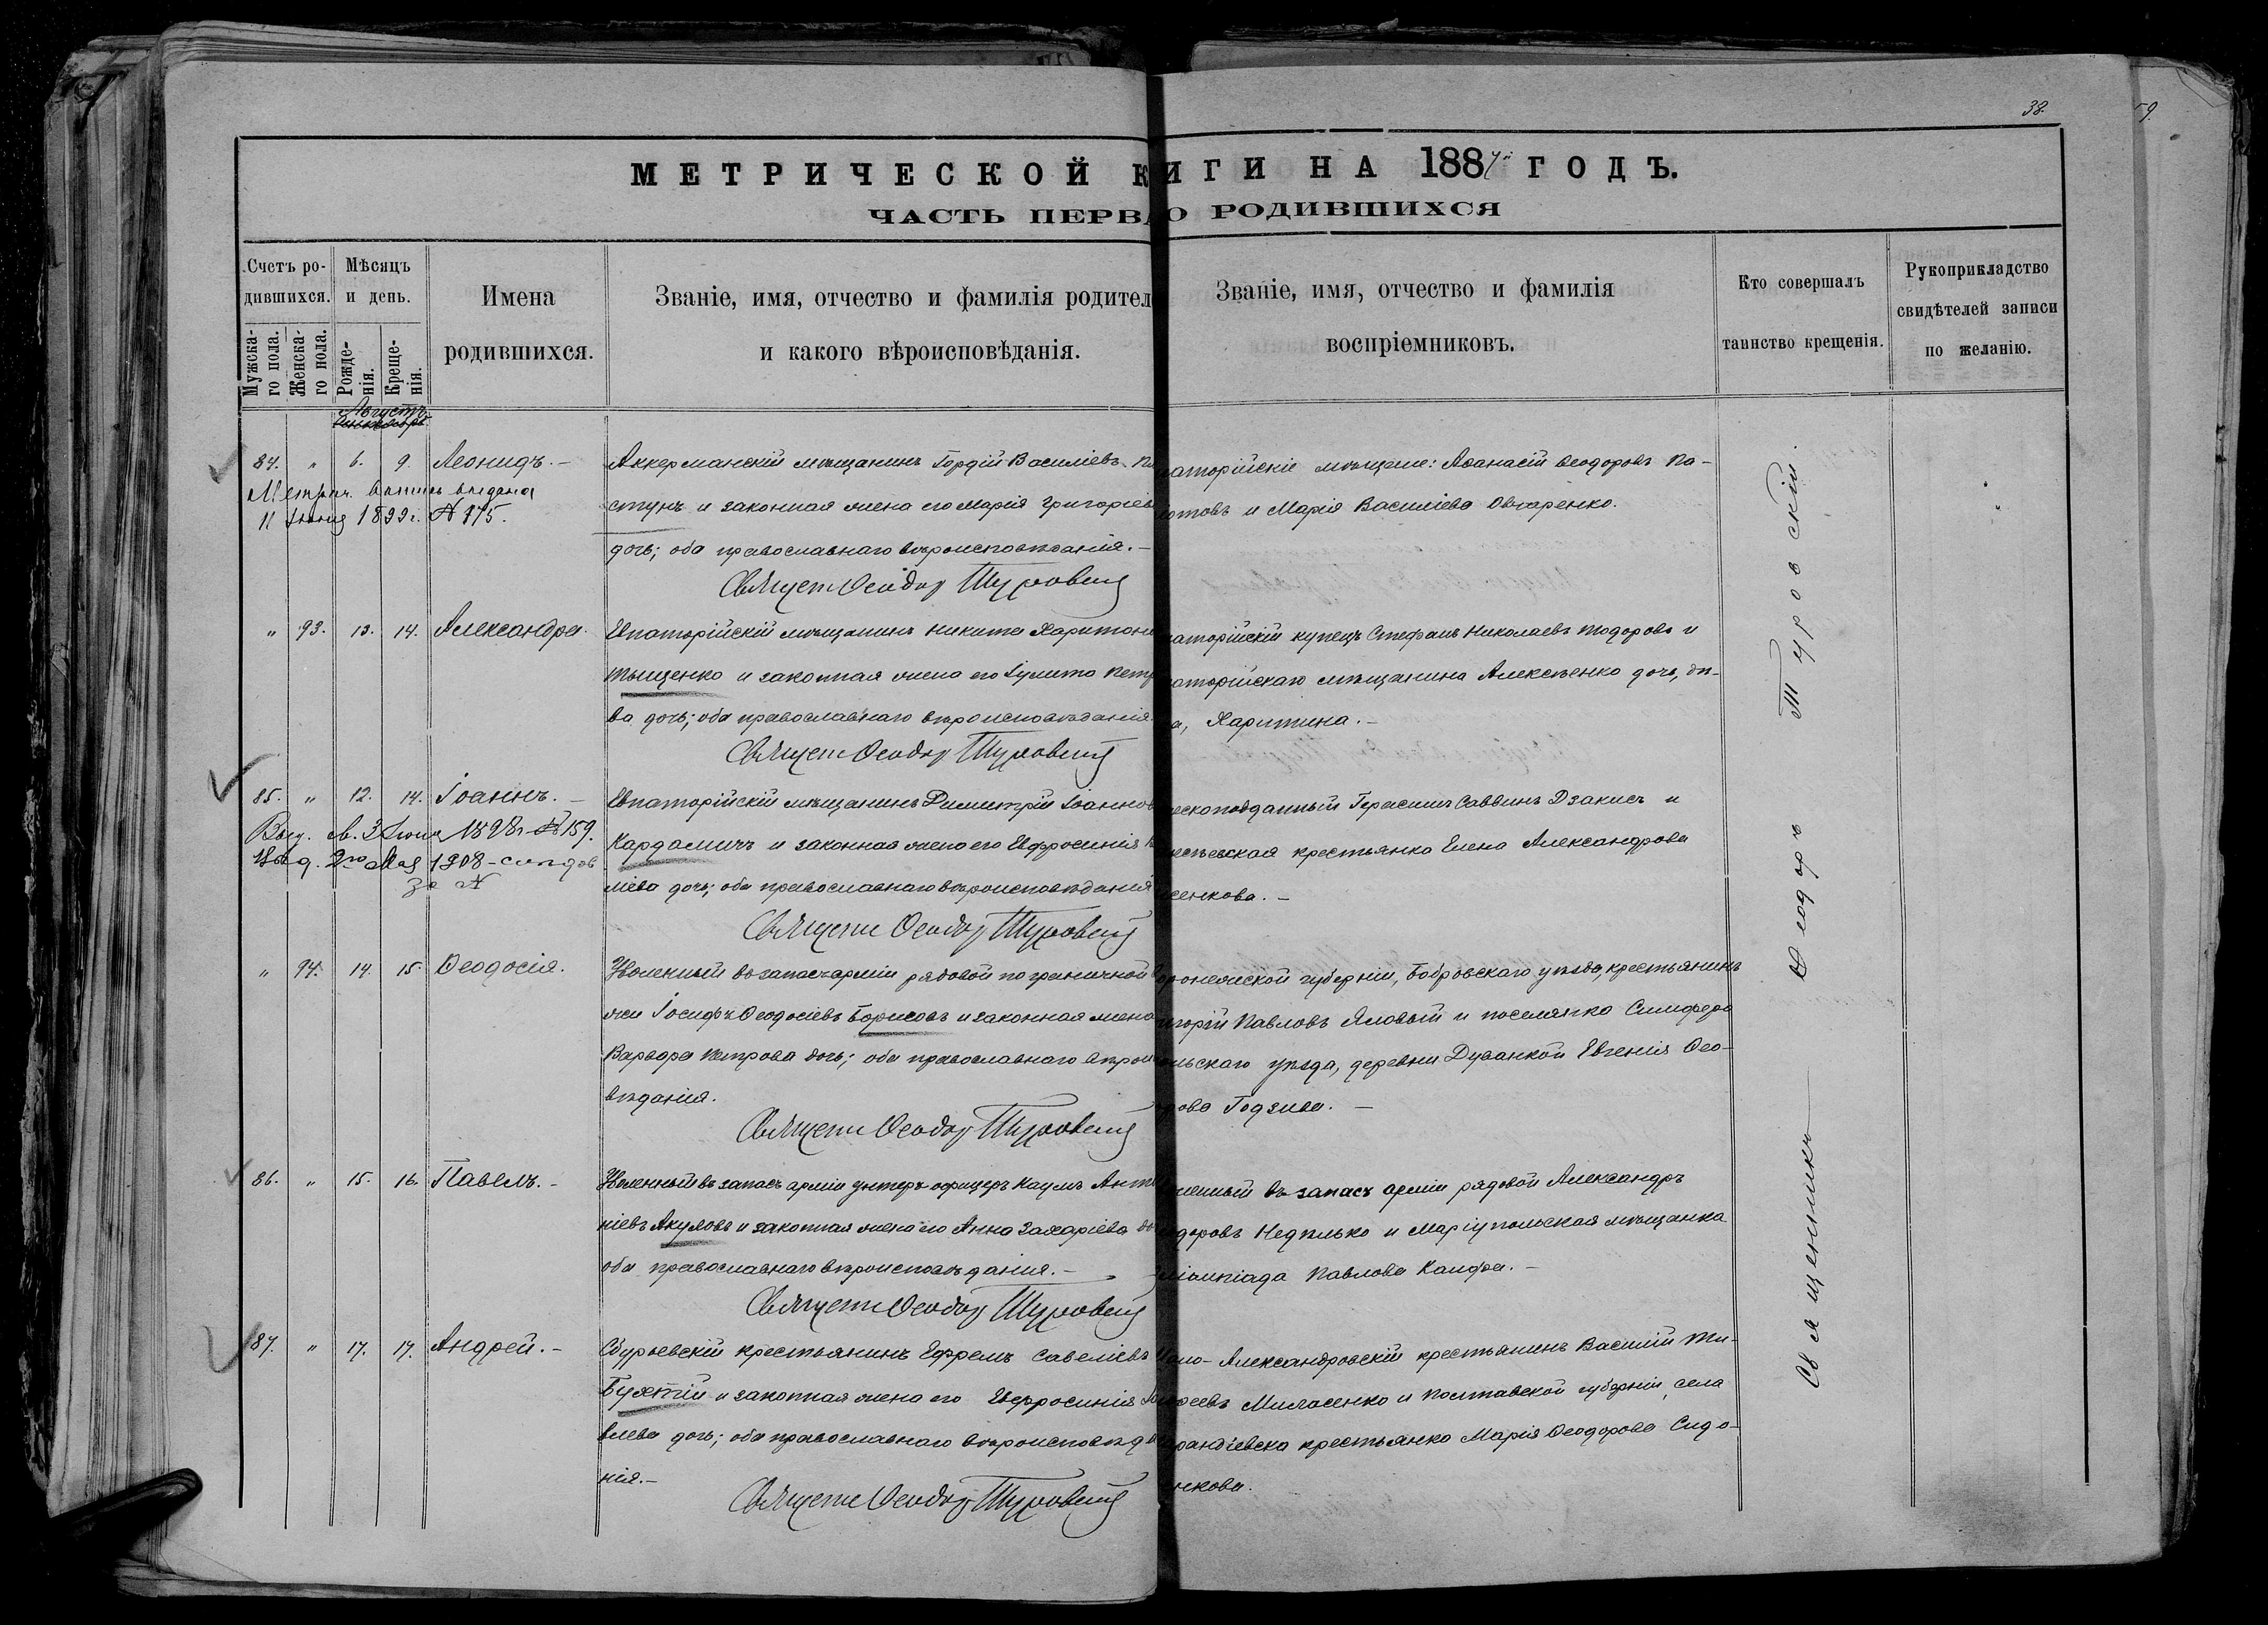 38.
9.
МЕТРИЧЕСКОЙ К
ИГИ НА 1887й ГОДЪ.
ЧАСТЬ ПЕРВА
О РОДИВШИХСЯ
Счетъ ро-
дившихся.
Мужска-
го пола.
Женска-
го пола.
Мѣсяцъ
и день.
Рожде-
нія.
Креще-
нія.
Имена
родившихся.
Званіе, имя, отчество и фамилія родител
и какого вѣроисповѣданія.
Званіе, имя, отчество и фамилія
воспріемниковъ.
Кто совершалъ
таинство крещенія.
Рукоприкладство
свидѣтелей записи
по желанію.
Августъ
84. " 6. 9. Леонидъ. –
Метрич. выпись выдана
11 Іюня 1899 г. № 175.
Аккерманскій мѣщанинъ Гордій Василіевъ Па
стунъ и законная жена его Марія Григоріев
дочь; оба православнаго вѣроисповѣданія. –
Священ Ѳеодор Туровскій
аторійскіе мѣщане: Аѳанасій Ѳеодоровъ Па-
отовъ и Марія Василіева Овчаренко.
" 93. 13. 14. Александра.
Евпаторійскій мѣщанинъ Никита Харитон
Тыщенко и законная жена его Іулита Петр
ва дочь; оба православнаго вѣроисповѣданія.
Священ Ѳеодор Туровскій
аторійскій купецъ Стефанъ Николаевъ Тодоровъ и
аторійскаго мѣщанина Алексѣенко дочь, дѣ-
а, Харитина. –
85. " 12. 14. Іоаннъ. –
Выд. м. 3 Іюня 1898 г. № 159.
Выд. 2го Мая 1908 –
за №
Евпаторійскій мѣщанинъ Димитрій Іоаннов
Кардамичъ и законная жена его Евфросинія
ліева дочь; оба православнаго вѣроисповѣданія
Священ Ѳеодор Туровскій
ескоподданный Герасимъ Саввинъ Дзакисъ и
евская крестьянка Елена Александрова
сенкова. –
" 94. 14. 15. Ѳеодосія.
Уволенный въ запасъ арміи рядовой пограничной
жи Іосифъ Ѳеодосіевъ Борисовъ и законная жена
Варвара Петрова дочь; оба православнаго вѣроис
вѣданія.
Священ Ѳеодор Туровскій
оронежской губерніи, Бобровскаго уѣзда, крестьянинъ
игорій Павловъ Яловый и поселянка Симферо
ольскаго уѣзда, деревни Дуванкой Евгенія Ѳео-
рова Годзива. –
86. " 15. 16. Павелъ. –
Уволенный въ запасъ арміи унтеръ-офицеръ Наумъ Анто
ніевъ Акуловъ и законная жена его Анна Захаріева до
оба православнаго вѣроисповѣданія. –
Священ Ѳеодор Туровскій
ленный въ запасъ арміи рядовой Александръ
одоровъ Недѣлько и Маріупольская мѣщанка
лимпіада Павлова Канфа. –
87. " 17. 17. Андрей. –
крестьянинъ Ефремъ Савеліевъ
Бухтій и законная жена его Евфросинія
влева дочь; оба православнаго вѣроисповѣда
нія. –
Священ Ѳеодор Туровскій
Александровскій крестьянинъ Василій Ти-
оѳеевъ Миласенко и Полтавской губерніи, села
крестьянка Марія Ѳеодорова Сидо-
нкова.
Священникъ Ѳеодоръ Туровскій.